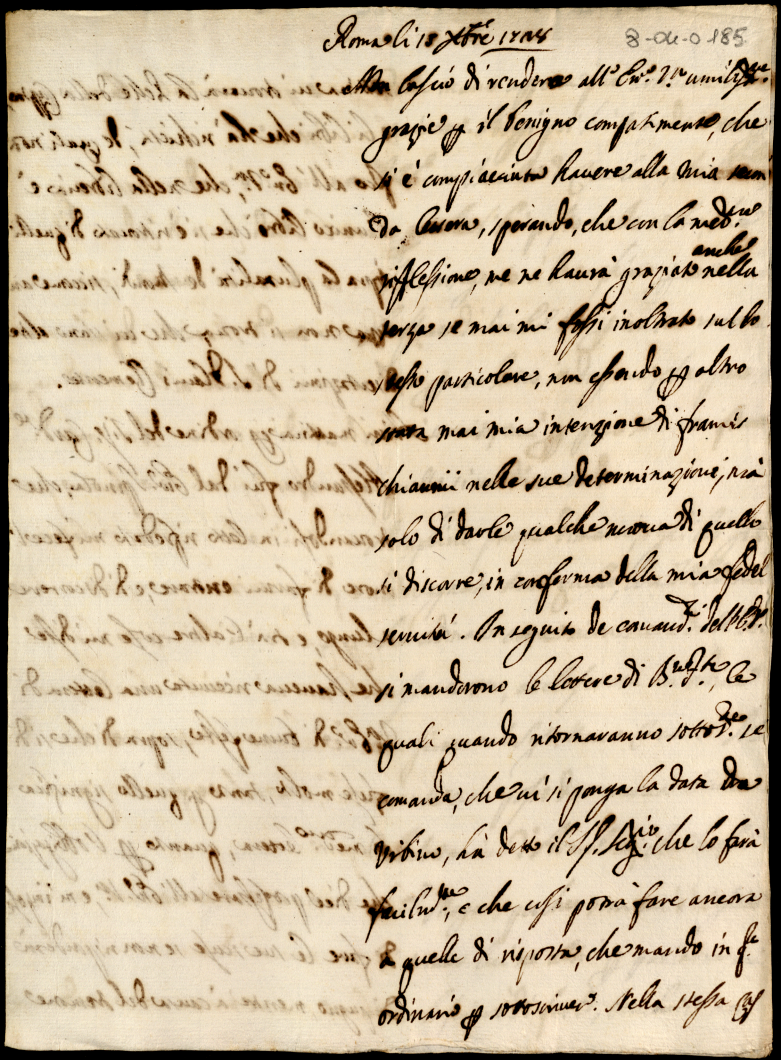 8-04-0 185
Roma li 18 Xbre 1708
Non lascio di rendere all' Em.ª V.ª umiliss.me
grazie p il benigno compatimento, che
si è compiaciuta havere alla mia secon
da lettera, sperando, che con la med.ma
riflessione, me ne haurà graziato anche nella
terza se mai mi fossi inoltrato sul lo
stesso particolare, non essendo p altro
stata mai mia intenzione di framis
chiarmi nelle sue determinazioni, mà
solo di darle qualche nuova di quello
si discorre, in conferma della mia fedel
servitù. In seguito de comand.ti dell' E. V.
si manderono le lettere di B.
quali quando ritornaranno sottos.te se
comanda, che vi si ponga la data da
Urbino, hà detto il S.r Seg.rio che lo farà
facilm.te, e che così potrà fare ancora
a quelle di risposta, che mando in q.to
ordinario p sottoscriver. Nella stessa